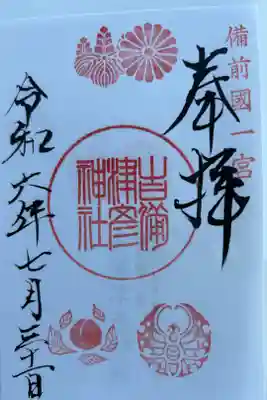 備前國一宮
奉拝
吉備
津彦
神社
令和六年七月三十一日